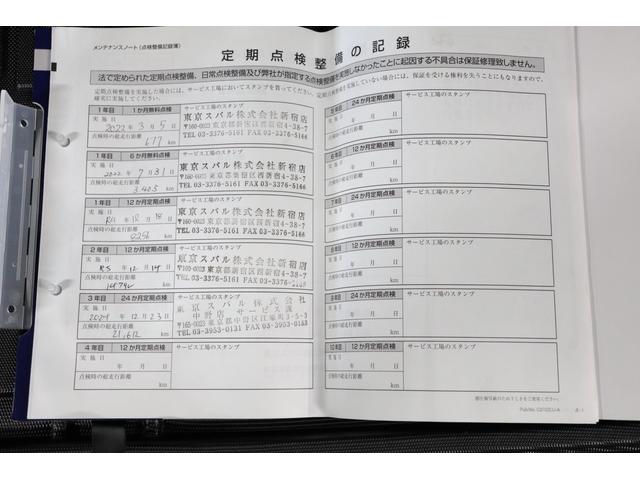 メンテナンスノート（点検整備記録簿）
定期点検整備の記録
法で定められた定期点検整備、日常点検整備及び弊社が指定する点検整備を実施しなかったことに起因する不具合は保証修理致しません。
定期点検整備を実施した場合には、サービス工場においてスタンプを貰ってください。定期点検整備を実施していない場合には、保証を受ける権利を失うことにもなりますので、
確実に実施してください。
1年目 1か月無料点検 サービス工場のスタンプ
実施日
2022年3月5日
点検時の総走行距離
677 km
東京スバル株式会社新宿店
〒160-0023 東京都新宿区西新宿4-38-7
TEL 03-3376-5161 FAX 03-3376-5166
1年目 6か月無料点検 サービス工場のスタンプ
実施日
2022年7月31日
点検時の総走行距離
3405 km
東京スバル株式会社新宿店
〒160-0023 東京都新宿区西新宿4-38-7
TEL 03-3376-5161 FAX 03-3376-5166
1年目 12か月定期点検 サービス工場のスタンプ
実施日
年12月18日
点検時の総走行距離
km
東京スバル株式会社新宿店
〒160-0023 東京都新宿区西新宿4-38-7
TEL 03-3376-5161 FAX 03-3376-5166
2年目 12か月定期点検 サービス工場のスタンプ
実施日
R5年12月14日
点検時の総走行距離
km
東京スバル株式会社新宿店
〒160-0023 東京都新宿区西新宿4-38-7
TEL 03-3376-5161 FAX 03-3376-5166
3年目 24か月定期点検 サービス工場のスタンプ
実施日
2024年12月23日
点検時の総走行距離
21,612 km
東京スバル株式会社
中野店 サービス課
東京都中野区江原町3-5-3
TEL 03-3953-0131 FAX 03-3953-0183
4年目 12か月定期点検 サービス工場のスタンプ
実施日
年 月 日
点検時の総走行距離
km
24か月定期点検 サービス工場のスタンプ
実施日
年 月 日
点検時の総走行距離
km
6年目 12か月定期点検 サービス工場のスタンプ
実施日
年 月 日
点検時の総走行距離
km
7年目 24か月定期点検 サービス工場のスタンプ
実施日
年 月 日
点検時の総走行距離
km
8年目 12か月定期点検 サービス工場のスタンプ
実施日
年 月 日
点検時の総走行距離
km
9年目 24か月定期点検 サービス工場のスタンプ
実施日
年 月 日
点検時の総走行距離
km
10年目 12か月定期点検 サービス工場のスタンプ
実施日
年 月 日
点検時の総走行距離
km